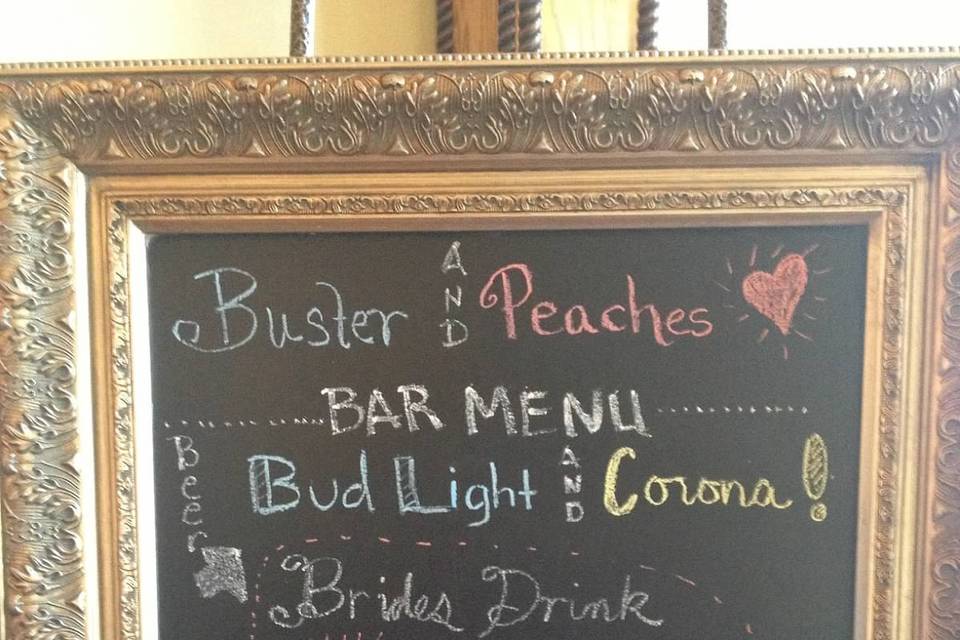 Buster AND Peaches
BAR MENU
Beer
Bud Light AND Corona!
Brides Drink